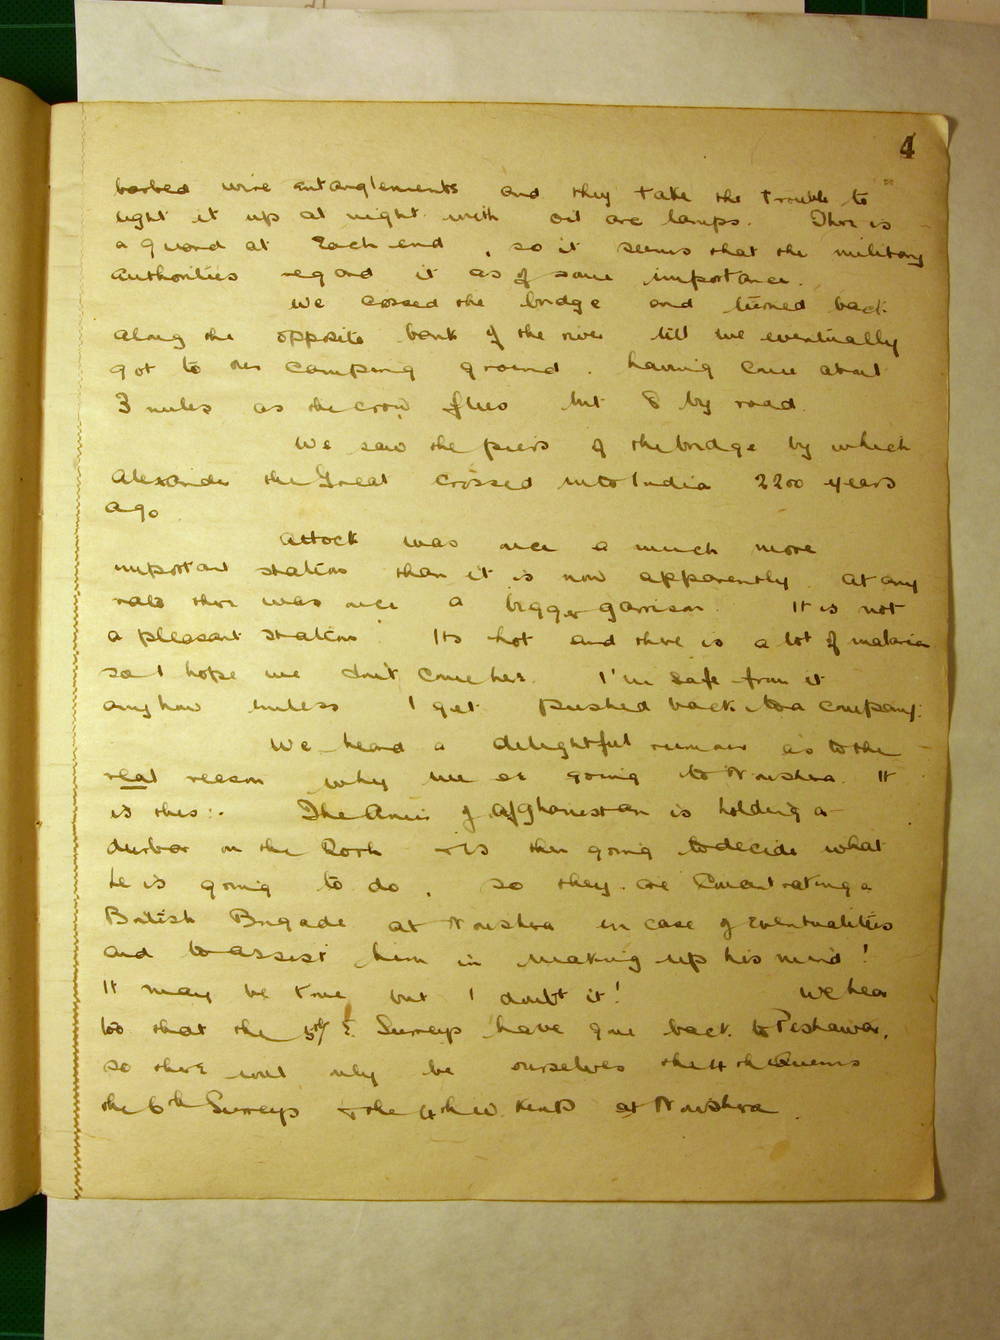 4
barbed wire antanglements and they take the trouble to
light it up at night with oil arc lamps. There is
a guard at each end, so it seems that the military
authorities regard it as of some importance.
We crossed the bridge and turned back
along the opposite bank of the river till we eventually
got to our camping ground. having come about
3 miles as the crow flies but 8 by road.
We saw the piers of the bridge by which
Alexander the Great crossed into India 2200 years
ago
Attock was once a much more
important station than it is now apparently. at any
rate there was once a bigger garrison. It is not
a pleasant station. Its hot and there is a lot of malaria
so I hope we dont come here. I'm safe from it
anyhow unless I get pushed back to a company.
We heard a delightful rumour as to the
real reason why we are going to Nowshra. It
is this:- The Amir of Afghanistan is holding a
durbar on the 20th & is then going to decide what
he is going to do, so they are concentrating a
British Brigade at Nowshra in case of eventualities
and to assist him in making up his mind!
It may be true but I doubt it! We hear
too that the 5th E. Surreys have gone back to Peshawar,
so there will only be ourselves the 4th Queens
the 6th Surreys & the 4th W. Kents at Nowshra.